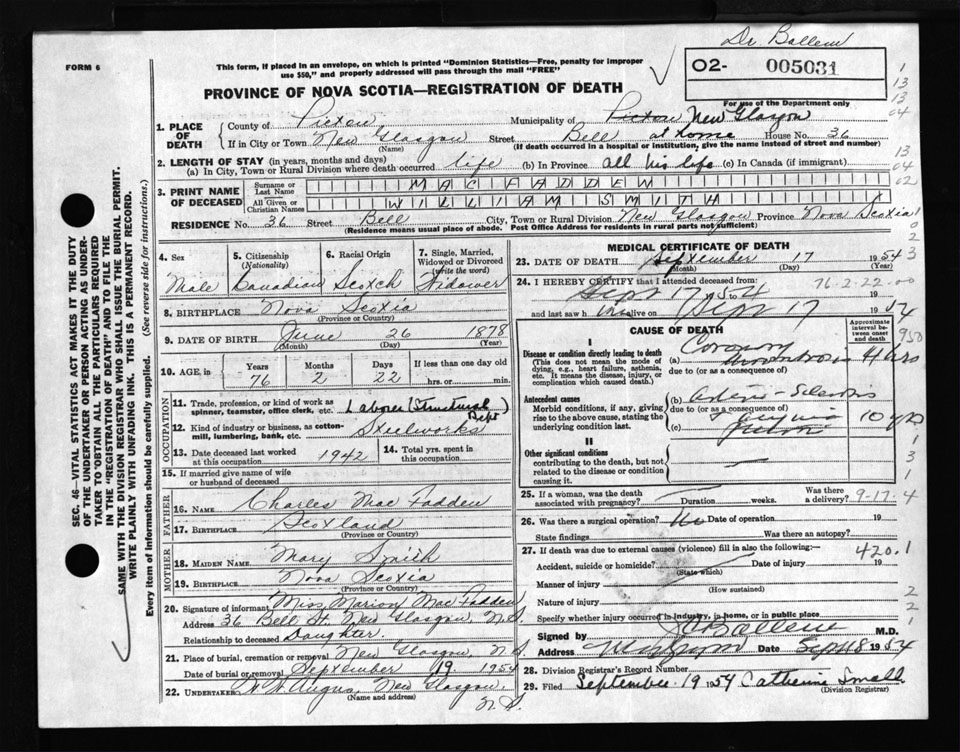 Dr. Ballem
FORM 6
This form, if placed in an envelope, on which is printed "Dominion Statistics—Free, penalty for improper
use $50," and properly addressed will pass through the mail "FREE"
02- 005031
PROVINCE OF NOVA SCOTIA—REGISTRATION OF DEATH
For use of the Department only
1. PLACE OF DEATH
County of Pictou Municipality of Pictou New Glasgow
If in City or Town New Glasgow Street Bell at home House No. 36
(Name) (If death occurred in a hospital or institution, give the name instead of street and number)
2. LENGTH OF STAY (in years, months and days)
(a) In City, Town or Rural Division where death occurred life (b) In Province all his life (c) In Canada (if immigrant)
3. PRINT NAME OF DECEASED
Surname or Last Name MAC FADDEN
All Given or Christian Names WILLIAM SMITH
RESIDENCE No. 36 Street Bell City, Town or Rural Division New Glasgow Province Nova Scotia
(Residence means usual place of abode. Post Office Address for residents in rural parts not sufficient)
SEC. 46—VITAL STATISTICS ACT MAKES IT THE DUTY
OF THE UNDERTAKER OR PERSON ACTING AS UNDER-
TAKER TO OBTAIN ALL THE PARTICULARS REQUIRED
IN THE "REGISTRATION OF DEATH" AND TO FILE THE
SAME WITH THE DIVISION REGISTRAR WHO SHALL ISSUE THE BURIAL PERMIT.
WRITE PLAINLY WITH UNFADING INK. THIS IS A PERMANENT RECORD.
Every item of information should be carefully supplied. (See reverse side for instructions.)
4. Sex Male
5. Citizenship (Nationality) Canadian
6. Racial Origin Scotch
7. Single, Married, Widowed or Divorced (write the word) Widower
8. BIRTHPLACE Nova Scotia
(Province or Country)
9. DATE OF BIRTH June 26 1878
(Month) (Day) (Year)
10. AGE, in Years 76 Months 2 Days 22 If less than one day old hrs. or min.
OCCUPATION
11. Trade, profession, or kind of work as spinner, teamster, office clerk, etc. Laborer (Structural Dept)
12. Kind of industry or business, as cotton-mill, lumbering, bank, etc. Steelworks
13. Date deceased last worked at this occupation 1942
14. Total yrs. spent in this occupation
15. If married give name of wife or husband of deceased
FATHER
16. NAME Charles Mac Fadden
17. BIRTHPLACE Scotland
(Province or Country)
MOTHER
18. MAIDEN NAME Mary Smith
19. BIRTHPLACE Nova Scotia
(Province or Country)
20. Signature of informant Miss Marion Mac Fadden
Address 36 Bell St. New Glasgow, N.S.
Relationship to deceased Daughter
21. Place of burial, cremation or removal New Glasgow, N.S.
Date of burial or removal September 19 1954
22. UNDERTAKER Angus, New Glasgow, N.S.
(Name and address)
MEDICAL CERTIFICATE OF DEATH
23. DATE OF DEATH September 17 1954
(Month) (Day) (Year)
24. I HEREBY CERTIFY that I attended deceased from: 76-2-22-00
Sept 17 1954 to 19
and last saw h im alive on Sept 17 1954
CAUSE OF DEATH
Approximate interval between onset and death
I
Disease or condition directly leading to death
(This does not mean the mode of dying, e.g., heart failure, asthenia, etc. It means the disease, injury, or complication which caused death.)
(a) Coronary Thrombosis
due to (or as a consequence of)
Antecedent causes
Morbid conditions, if any, giving rise to the above cause, stating the underlying condition last.
(b) Arterio-Sclerosis
due to (or as a consequence of)
(c)
10 yrs
II
Other significant conditions
contributing to the death, but not related to the disease or condition causing it.
25. If a woman, was the death associated with pregnancy? Duration weeks. Was there a delivery? 9-17-4
26. Was there a surgical operation? No Date of operation 19
State findings Was there an autopsy?
27. If death was due to external causes (violence) fill in also the following:— 420.1
Accident, suicide or homicide? (State which) Date of injury 19
Manner of injury
(How sustained)
Nature of injury
Specify whether injury occurred in industry, in home, or in public place
Signed by Ballem M.D.
Address Date Sept 18 1954
28. Division Registrar's Record Number
29. Filed September 19 1954 Catherine Small
(Division Registrar)